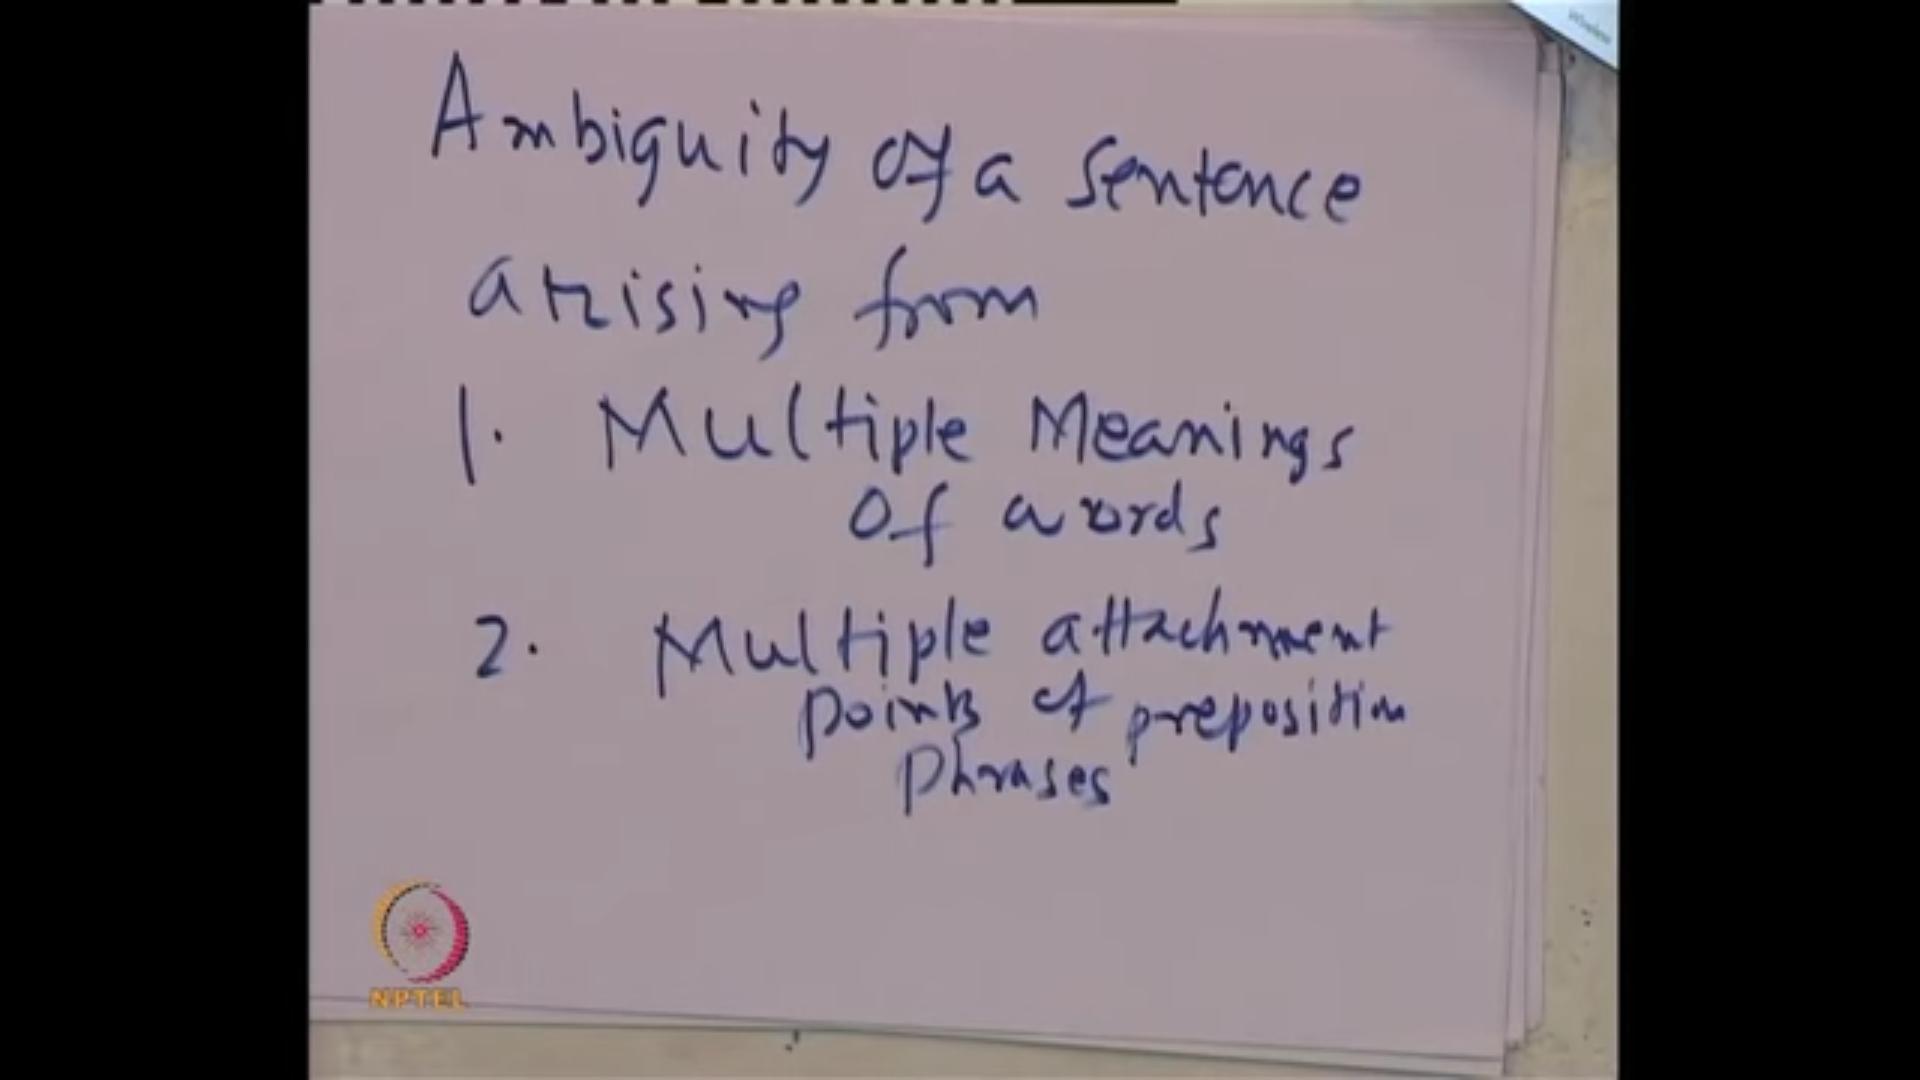 Ambiguity of a sentence
arising from
1. Multiple Meanings
of words
2. Multiple attachment
points of preposition
phrases
NPTEL